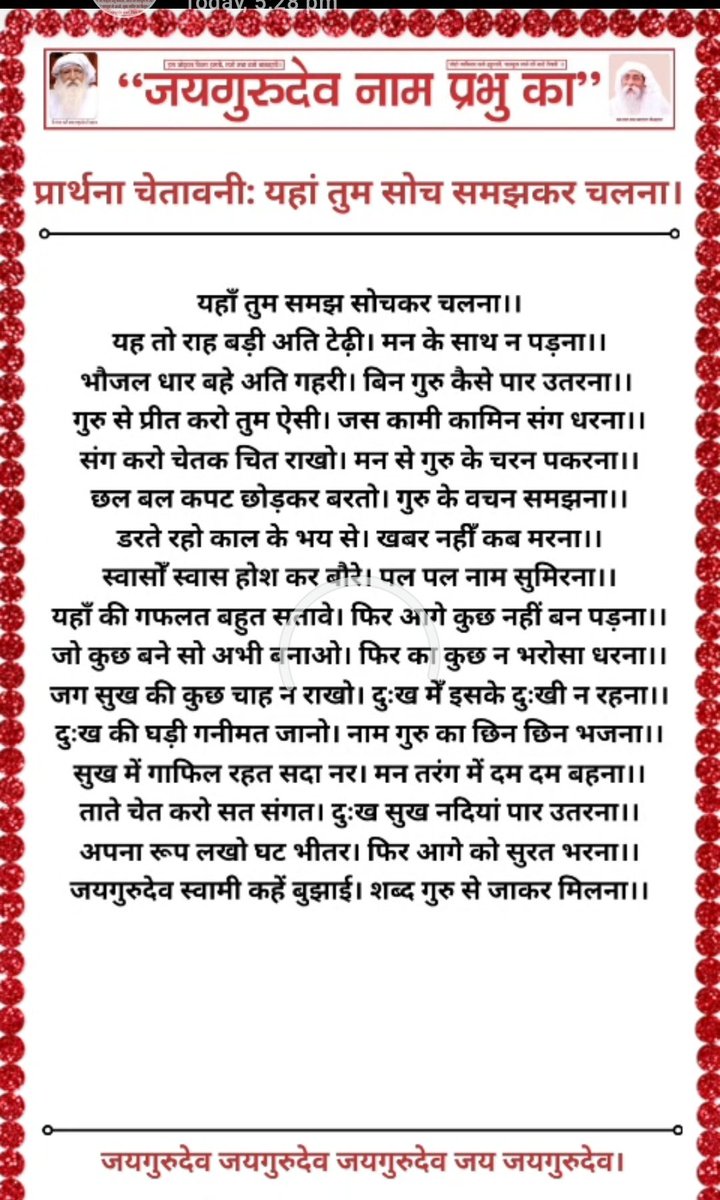 Today, 5.28 pm
“जयगुरुदेव नाम प्रभु का”
प्रार्थना चेतावनी: यहां तुम सोच समझकर चलना।
यहाँ तुम समझ सोचकर चलना।।
यह तो राह बड़ी अति टेढ़ी। मन के साथ न पड़ना।।
भौजल धार बहे अति गहरी। बिन गुरु कैसे पार उतरना।।
गुरु से प्रीत करो तुम ऐसी। जस कामी कामिन संग धरना।।
संग करो चेतक चित राखो। मन से गुरु के चरन पकरना।।
छल बल कपट छोड़कर बरतो। गुरु के वचन समझना।।
डरते रहो काल के भय से। खबर नहीं कब मरना।।
स्वासों स्वास होश कर बौरे। पल पल नाम सुमिरना।।
यहाँ की गफलत बहुत सतावे। फिर आगे कुछ नहीं बन पड़ना।।
जो कुछ बने सो अभी बनाओ। फिर का कुछ न भरोसा धरना।।
जग सुख की कुछ चाह न राखो। दुःख में इसके दुःखी न रहना।।
दुःख की घड़ी गनीमत जानो। नाम गुरु का छिन छिन भजना।।
सुख में गाफिल रहत सदा नर। मन तरंग में दम दम बहना।।
ताते चेत करो सत संगत। दुःख सुख नदियां पार उतरना।।
अपना रूप लखो घट भीतर। फिर आगे को सुरत भरना।।
जयगुरुदेव स्वामी कहें बुझाई। शब्द गुरु से जाकर मिलना।।
जयगुरुदेव जयगुरुदेव जयगुरुदेव जय जयगुरुदेव।